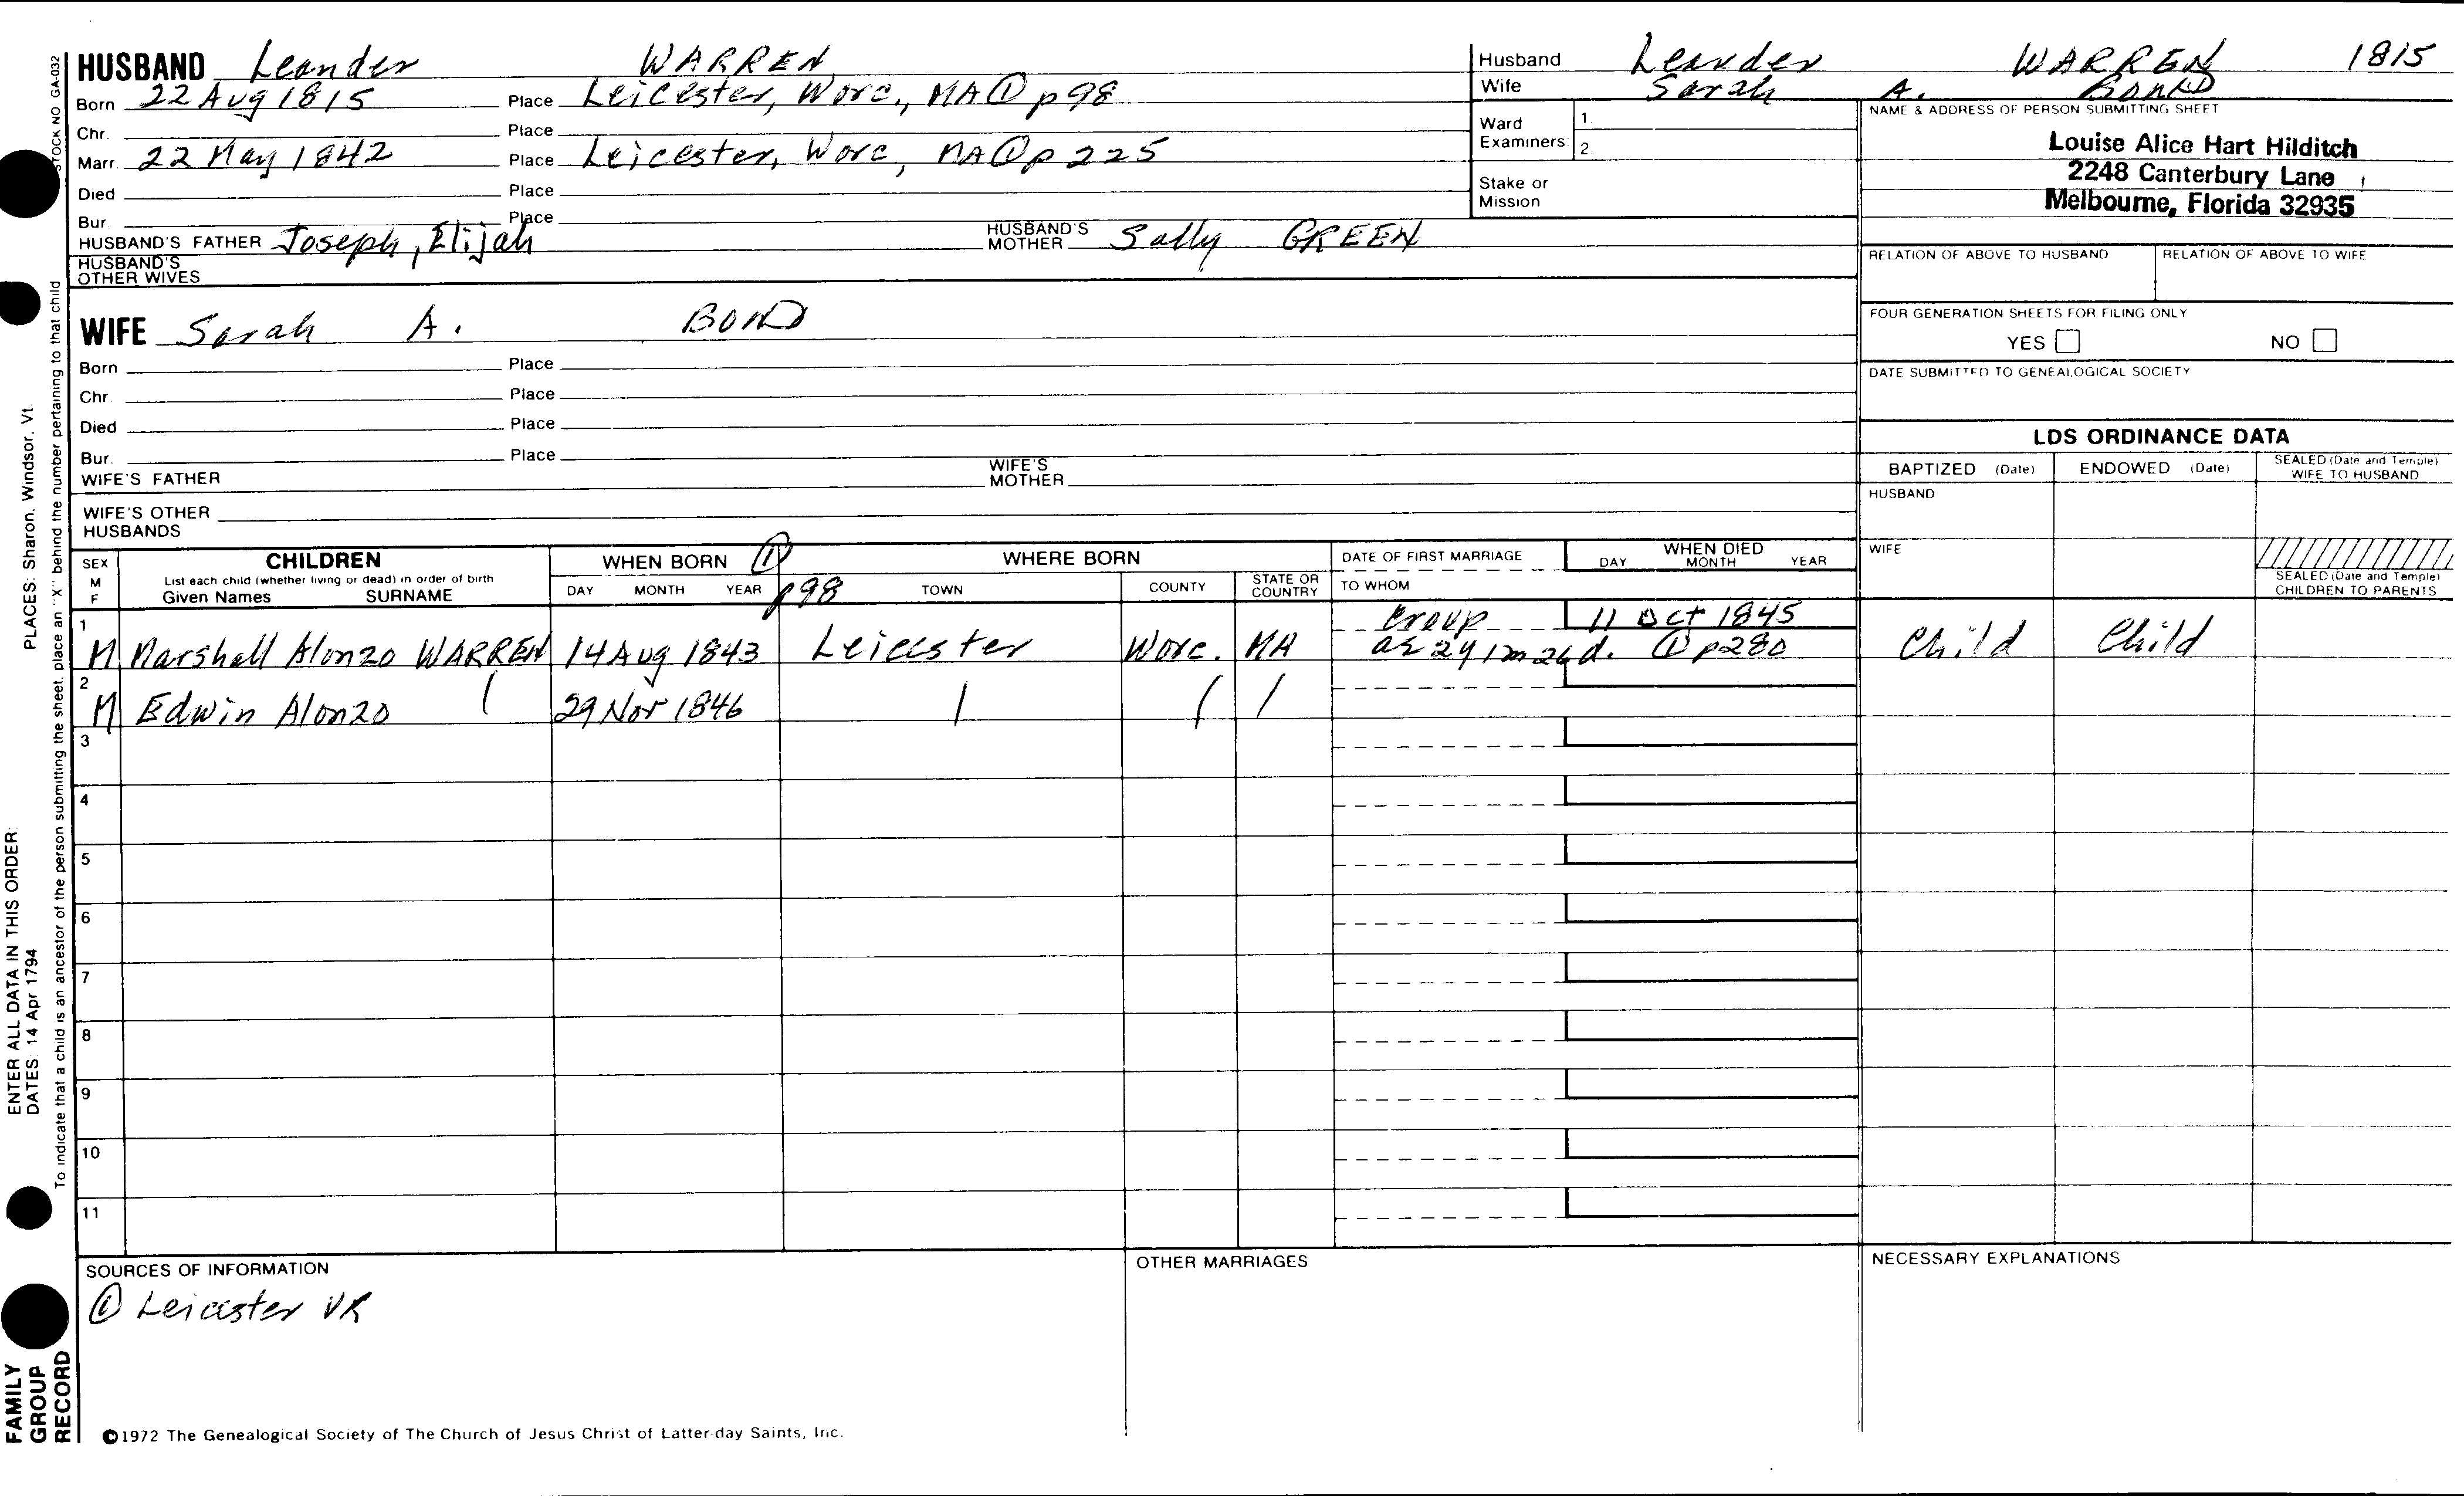 HUSBAND Leander WARREN
Born 22 Aug 1815 Place Leicester, Worc., MA ① p 98
Chr. Place
Marr. 22 May 1842 Place Leicester, Worc, MA ① p 225
Died Place
Bur. Place
HUSBAND'S FATHER Joseph, Elijah HUSBAND'S MOTHER Sally GREEN
HUSBAND'S OTHER WIVES
Husband Leander WARREN 1815
Wife Sarah A. BOND
Ward Examiners: 1.
2
Stake or Mission
NAME & ADDRESS OF PERSON SUBMITTING SHEET
Louise Alice Hart Hilditch
2248 Canterbury Lane
Melbourne, Florida 32935
RELATION OF ABOVE TO HUSBAND RELATION OF ABOVE TO WIFE
FOUR GENERATION SHEETS FOR FILING ONLY
YES NO
DATE SUBMITTED TO GENEALOGICAL SOCIETY
WIFE Sarah A. BOND
Born Place
Chr. Place
Died Place
Bur. Place
WIFE'S FATHER WIFE'S MOTHER
WIFE'S OTHER HUSBANDS
LDS ORDINANCE DATA
BAPTIZED (Date) ENDOWED (Date) SEALED (Date and Temple) WIFE TO HUSBAND
HUSBAND
WIFE
SEALED (Date and Temple) CHILDREN TO PARENTS
SEX M F CHILDREN WHEN BORN ① WHERE BORN DATE OF FIRST MARRIAGE WHEN DIED
List each child (whether living or dead) in order of birth
Given Names SURNAME DAY MONTH YEAR p98 TOWN COUNTY STATE OR COUNTRY TO WHOM DAY MONTH YEAR
1 Croup 11 Oct 1845
M Marshall Alonzo WARREN 14 Aug 1843 Leicester Worc. MA ae 2y 1m 26d. ① p280 Child Child
2
M Edwin Alonzo ( 29 Nov 1846 / ( /
3
4
5
6
7
8
9
10
11
SOURCES OF INFORMATION OTHER MARRIAGES NECESSARY EXPLANATIONS
① Leicester VR
©1972 The Genealogical Society of The Church of Jesus Christ of Latter-day Saints, Inc.
STOCK NO GA-032
To indicate that a child is an ancestor of the person submitting the sheet, place an "X" behind the number pertaining to that child
ENTER ALL DATA IN THIS ORDER:
DATES: 14 Apr 1794 PLACES: Sharon, Windsor, Vt.
FAMILY
GROUP
RECORD